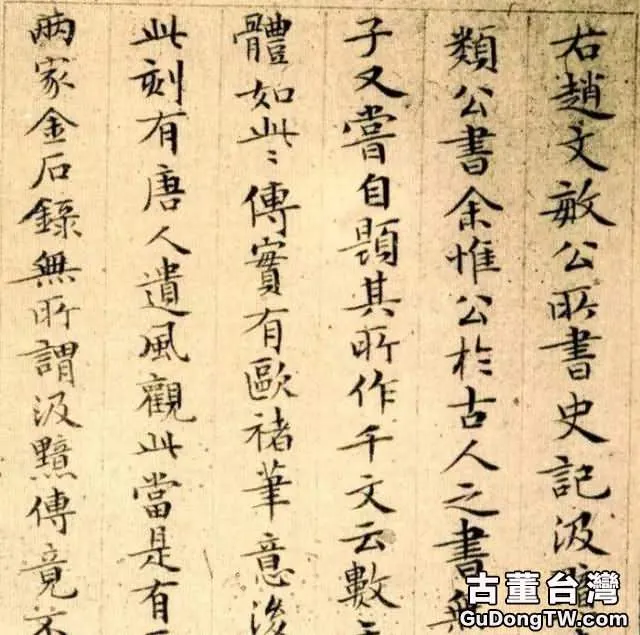 右趙文敏公所書史記汲黯
類公書余惟公於古人之書無
子又嘗自題其所作千文云數
體如此〻傳實有歐褚筆意後
此刻有唐人遺風觀此當是有
兩家金石錄無所謂汲黯傳竟
古董台灣
GuDongTW.com